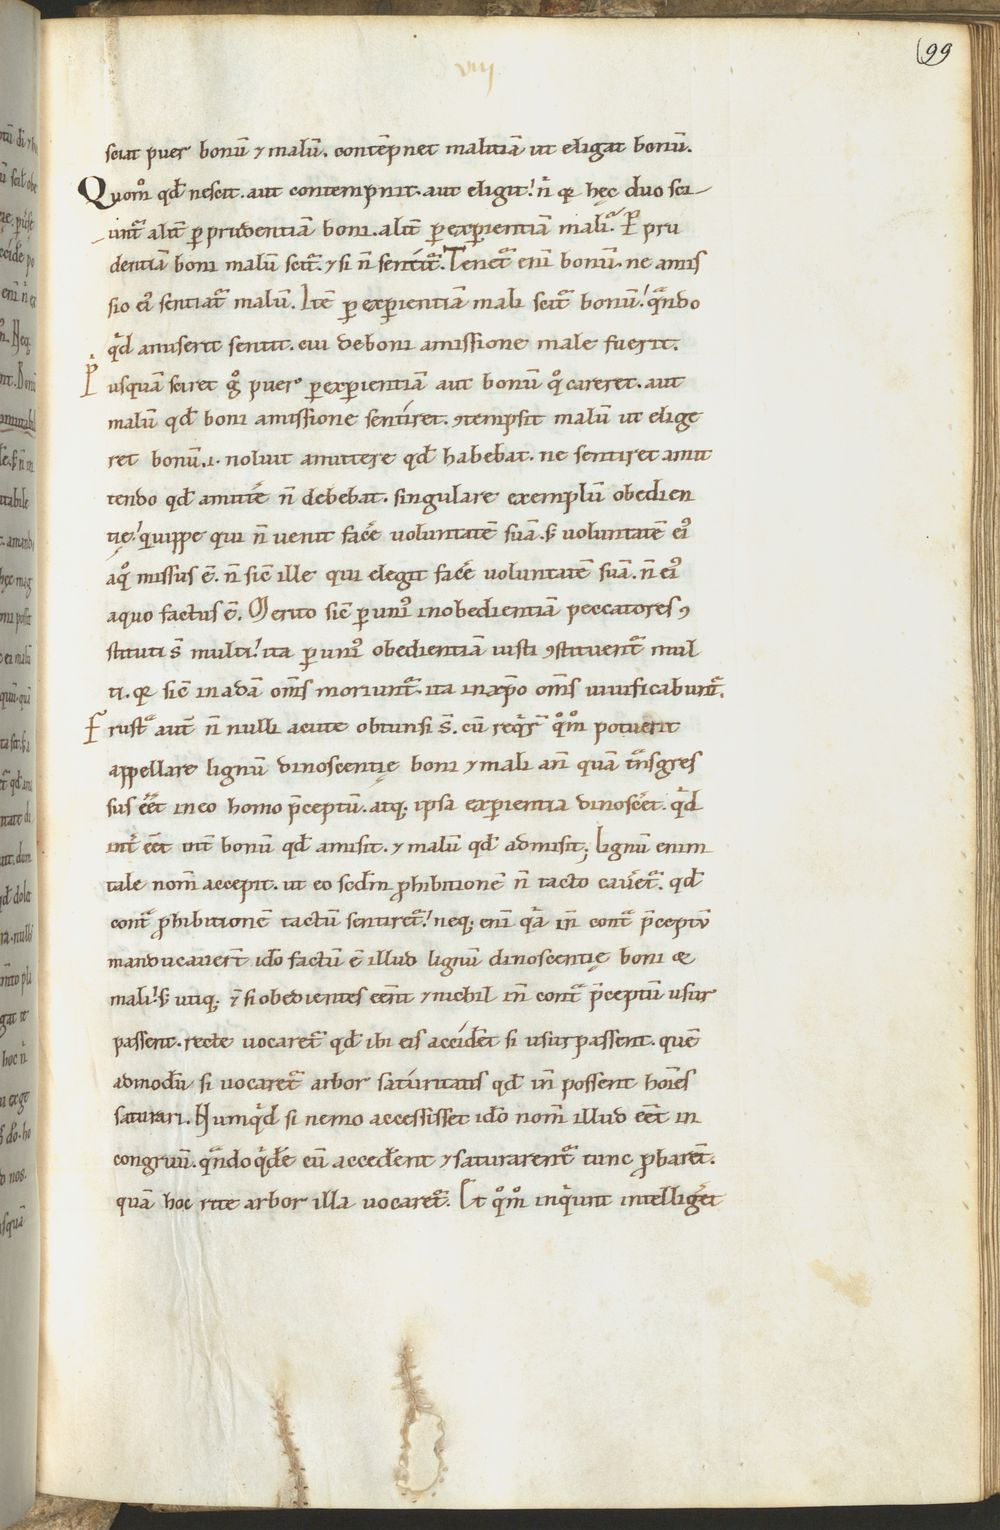 (99
viij
sciat puer bonū ⁊ malū. contēpnet malitiā ut eligat bonū.
Quom̊ qđ nescit. aut contempnit. aut eligit? ñ qꝛ hęc duo sci-
-unt᷑ aliť ꝑ prudentiā boni. aliť ꝑ exꝑientiā mali. Ꝑ pru
dentiā boni malū scit᷑. ⁊ si ñ sentit᷑. Tenet᷑ eni bonū. ne amis
sio ei᷒ sentiat᷑ malū. Itē ꝑ exꝑientiā mali scit᷑ bonū. qᷓndo
qͥd amiserit sentit. cui de boni amissione male fuerit.
Pͥusquā sciret gͦ puer ꝑ exꝑientiā aut bonū qͦ careret. aut
malū qđ boni amissione sentiret. ꝯtempsit malū ut elige
ret bonū .i. noluit amittere qđ habebat. ne sentiret amit
tendo qđ amittē ñ debebat. singulare exemplū obedien
tię. quippe qui ñ uenit facē uoluntatē suā. ꝭ uoluntatē ei᷒
a qͦ missus ē. ñ sic̄ ille qui elegit facē uoluntatē suā. ñ ei᷒
a quo factus ē. Merito sic̄ ꝑ uni᷒ inobedientiā peccatores ꝯ
stituti s̄ multi. ita ꝑ uni᷒ obedientiā iusti ꝯstituent᷑ mul
ti. qꝛ sic̄ in adā om̄s moriunt᷑. ita in xp̄o om̄s uiuificabunt᷑.
Frustᷓ aut̄ ñ nulli acute obtunsi s̄. cū reqͥr̄ qͦm̊ potuerit
appellare lignū dinoscentię boni ⁊ mali añ quā tᷓnsgres
sus eēt in eo homo p̄ceptū. atq; ipsa exꝑientia dinoscēt. qͥd
int̄ eēt int̄ bonū qđ amisit. ⁊ malū qđ admisit; lignū enim
tale nom̄ accepit. ut eo scd̄m ꝓhibitionē ñ tacto cauēt᷑. qđ
contᷓ ꝓhibitionē tactū sentiret᷑. neq; enī qͥa in̄ contᷓ p̄ceptū
manducauer̄t ido factū ē illud lignū dinoscentię boni &
mali. ꝭ utiq; ⁊ si obedientes eēnt ⁊ nichil in̄ contᷓ p̄ceptū usur
passent. recte uocaret᷑ qđ ibi eis accidēt si usurpassent. quē
admodū si uocaret᷑ arbor saturitatis qđ in̄ possent hoīes
saturari. Numqͥd si nemo accessisset ido nom̄ illud eēt in
congruū. qᷓndoqͥdē cū accedent ⁊ saturarent᷑ tunc ꝓbarent.
quā hoc rite arbor illa uocaret᷑. Et qͦm̊ inqͥunt intelligēt